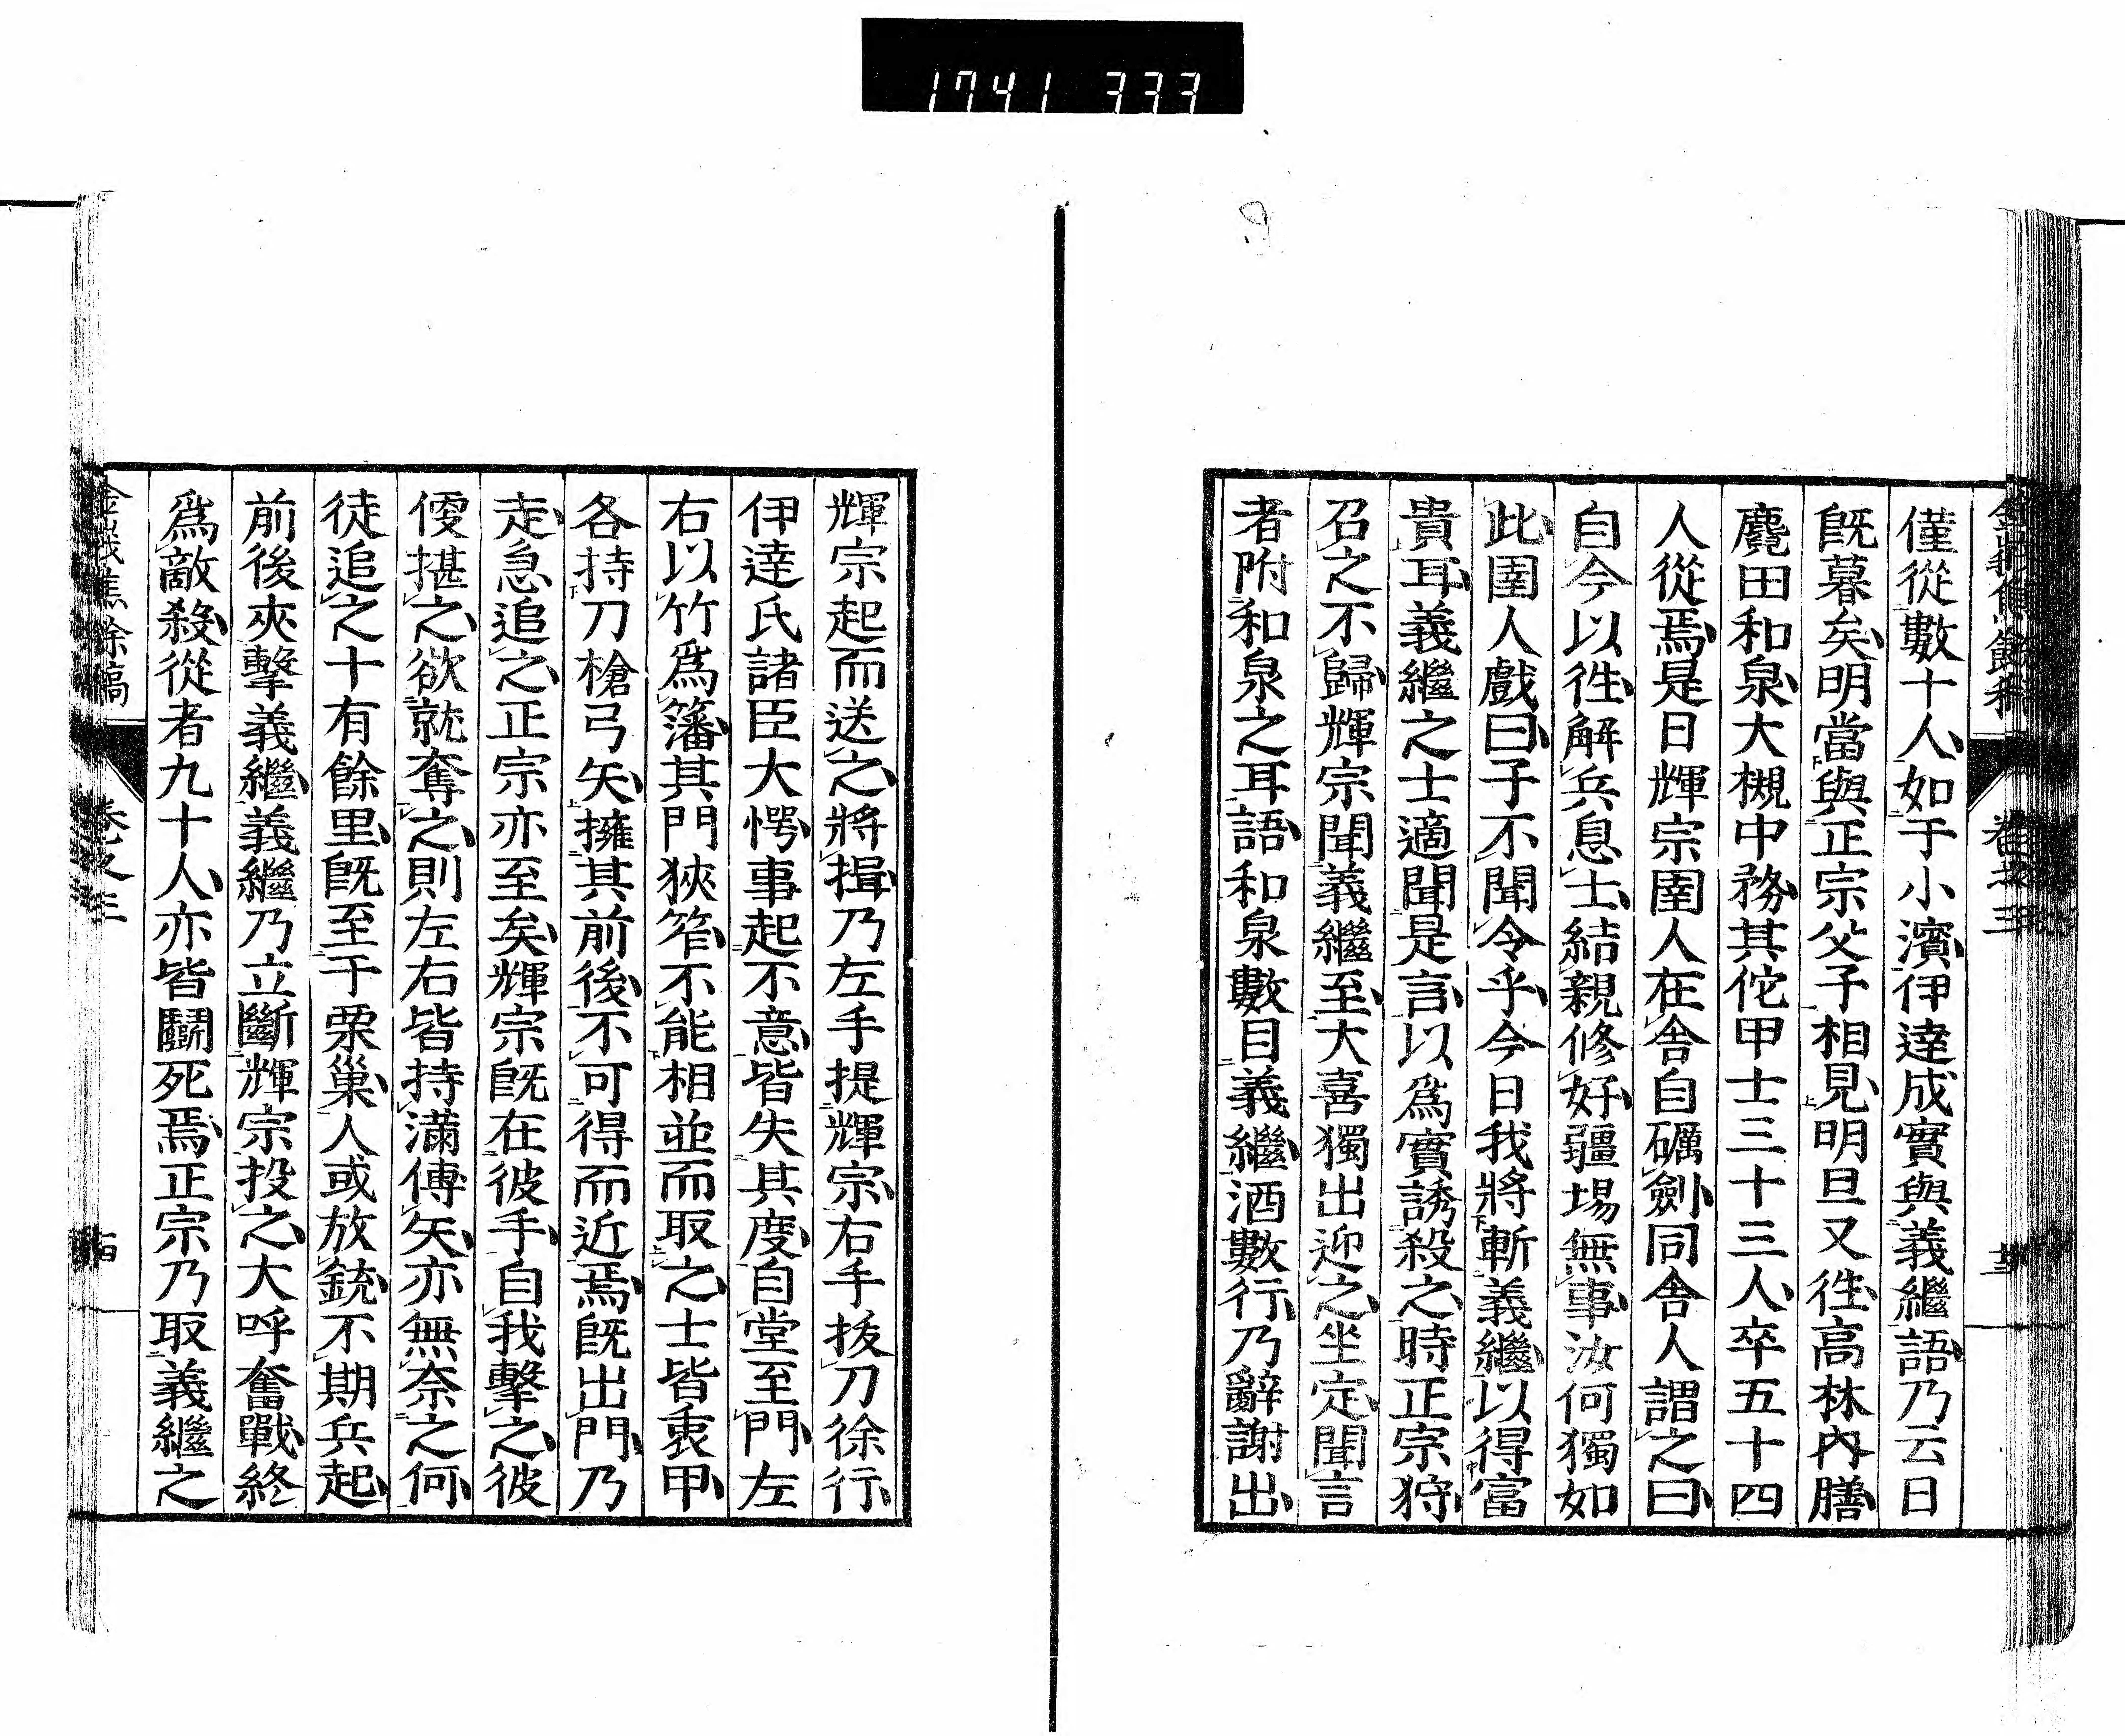 1741 333
僅從數十人如于小濱伊達成實與義繼語乃云日
既暮矣明當與正宗父子相見明旦又徃高林內膳
麑田和泉大槻中務其佗甲士三十三人卒五十四
人從焉是日輝宗圉人在舍自礪劍同舍人謂之曰
自今以徃解兵息士結親修好疆埸無事汝何獨如
此圉人戲曰子不聞令乎今日我將斬義繼以得富
貴耳義繼之士適聞是言以爲實誘殺之時正宗狩
召之不歸輝宗聞義繼至大喜獨出迎之坐定聞言
者附和泉之耳語和泉數目義繼酒數行乃辭謝出
卷之三
輝宗起而送之將揖乃左手提輝宗右手拔刀徐行
伊達氏諸臣大愕事起不意皆失其度自堂至門左
右以竹爲籓其門狹窄不能相並而取之士皆衷甲
各持刀槍弓矢擁其前後不可得而近焉既出門乃
走急追之正宗亦至矣輝宗既在彼手自我擊之彼
便揕之欲就奪之則左右皆持滿傅矢亦無奈之何
徒追之十有餘里既至于粟巢人或放銃不期兵起
前後夾擊義繼義繼乃立斷輝宗投之大呼奮戰終
爲敵殺從者九十人亦皆鬭死焉正宗乃取義繼之
卷之三